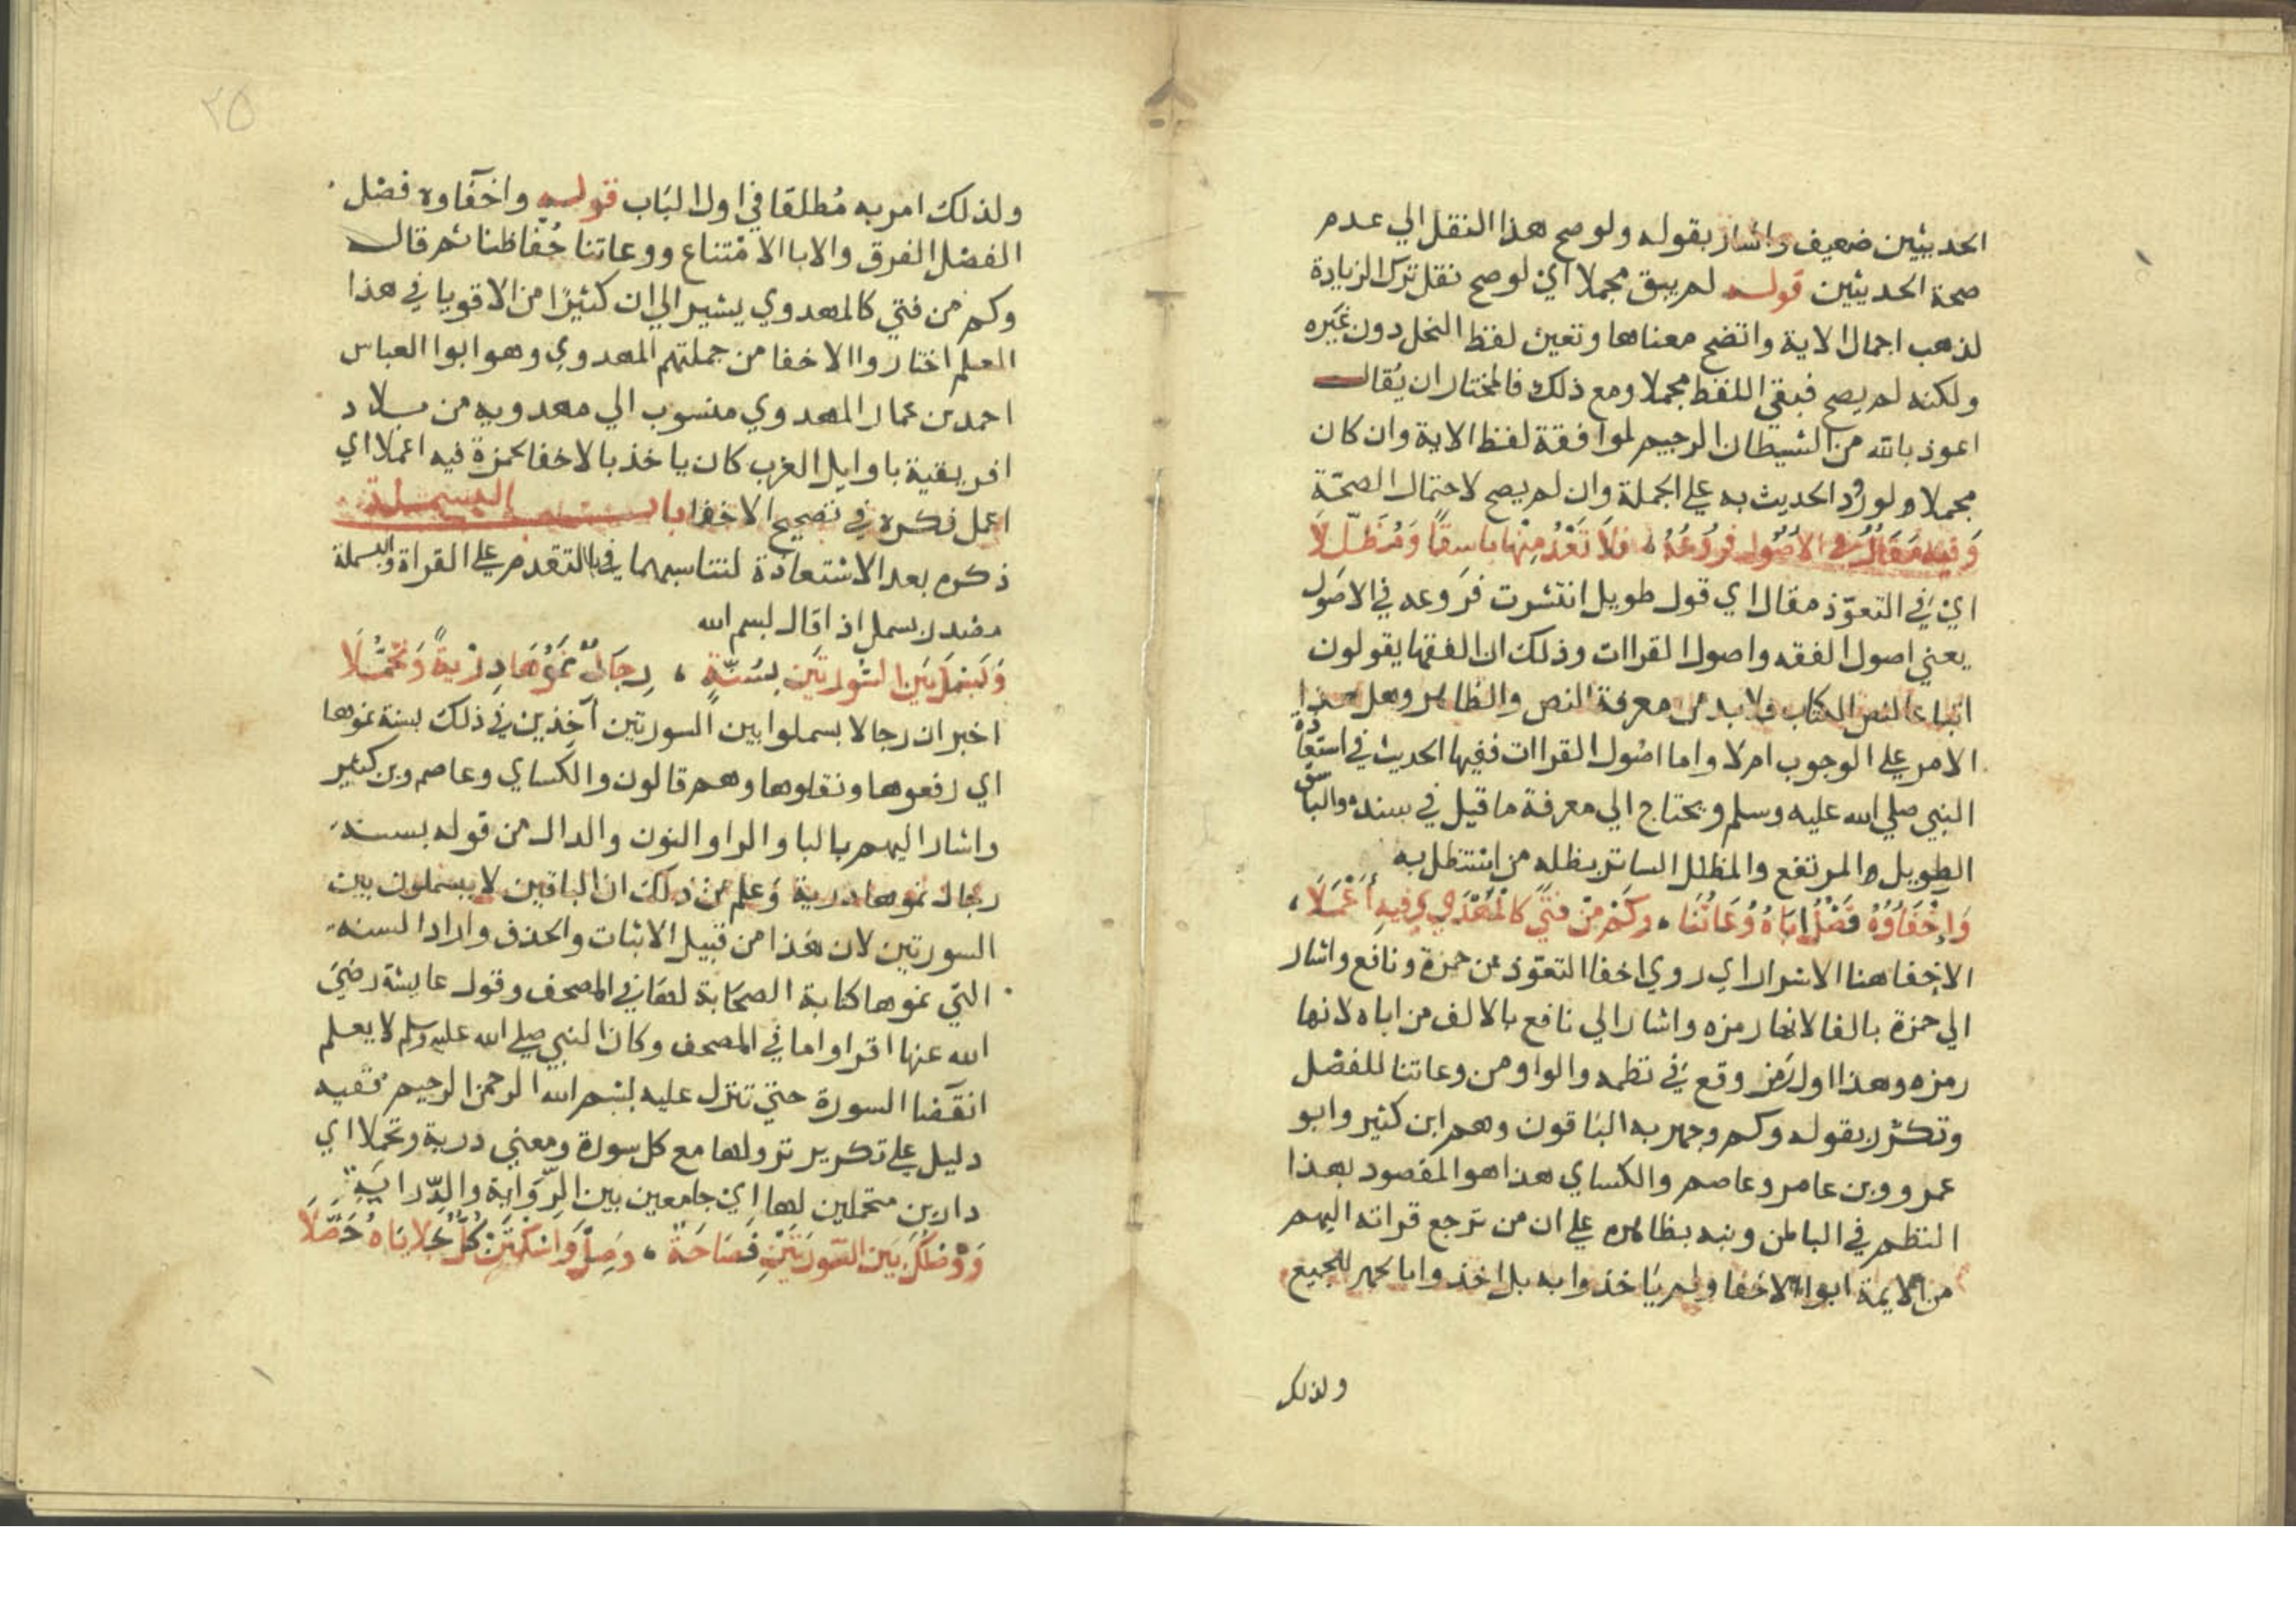 الحديثين ضعيف واشار بقوله ولو صح هذا النقل الي عدم
صحة الحديثين قوله لم يبق مجملا اي لو صح نقل ترك الزيادة
لذهب اجمال الاية واتضح معناها وتعين لفظ النحل دون غيره
ولكنه لم يصح فبقي اللفظ مجملا ومع ذلك فالمختار ان يقال
اعوذ بالله من الشيطان الرجيم لموافقة لفظ الاية وان كان
مجملا ولورود الحديث به علي الجملة وان لم يصح لاحتمال الصحة
وَفِيهِ مَقَالٌ فِي الأُصُولِ فُرُوعُهُ ، فَلاَ تَعْدُ مِنْهَا بَاسِقًا وَمُظَلِّلاَ
اي في التعوّذ مقال اي قول طويل انتشرت فروعه في الاصول
يعني اصول الفقه واصول القراات وذلك ان الفقها يقولون
اتباعا لنص الكتاب ولا بد من معرفة النص والظاهر وهل هذا
الامر علي الوجوب ام لا واما اصول القراات ففيها الحديث في استعاذة
النبي صلي الله عليه وسلم ويحتاج الي معرفة ما قيل في سنده والباسق
الطويل والمرتفع والمظلل الساتر بظله من استظل به
وَإِخْفَاؤُهُ فَصْلٌ ابَاهُ وُعَاتُنَا ، وَكَمْ مِنْ فَتًى كَالْمَهْدَوِي فِيهِ أَعْمَلاَ ،
الاخفا هنا الاسرار اي روي اخفا التعوّذ عن حمزة ونافع واشار
الي حمزة بالفا لانها رمزه واشار الي نافع بالالف من اباه لانها
رمزه وهذا اول رمز وقع في نظمه والواو من وعاتنا للفصل
وتكرر بقوله وكم وجهر به الباقون وهم ابن كثير وابو
عمرو وبن عامر وعاصم والكساي هذا هو المقصود بهذا
النظم في الباطن ونبه بظاهره علي ان من ترجع قراته اليهم
من الايمة ابوا الاخفا ولم ياخذوا به بل اخذوا بالجهر للجميع
ولذلك
٢٥
ولذلك امر به مُطلقا في اول الباب قوله واخفاوه فصل
الفصل الفرق والابا الامتناع ووعاتنا حُفاظنا ثم قال
وكم من فتي كالمهدوي يشير الي ان كثيرًا من الاقويا في هذا
العلم اختاروا الاخفا من جملتهم المهدوي وهو ابوا العباس
احمد بن عمار المهدوي منسوب الي مهدويه من بلاد
افريقية باوايل الغرب كان ياخذ بالاخفا لحمزة فيه اعملا اي
اعمل فكره في تصحيح الاخفا باب البسملة
ذكره بعد الاستعاذة لتناسبهما في التقدم علي القراة والبسملة
مصدر بسمل اذ اقال بسم الله
وَبَسْمَلَ بَيْنَ السُّورَتَيْنِ بِسُنَّةٍ ، رِجَالٌ نَمَوْهَا دِرْيَةً وَتَحَمُّلاَ
اخبر ان رجالا بسملوا بين السورتين آخذين في ذلك بسنة نموها
اي رفعوها ونقلوها وهم قالون والكساي وعاصم وبن كثير
واشار اليهم بالبا والرا والنون والدال من قوله بسنة
رجال نموها درية وعلم من ذلك ان الباقين لا يبسملون بين
السورتين لان هذا من قبيل الاثبات والحذف واراد السنة
التي نموها كتابة الصحابة لها في المصحف وقول عايشة رضي
الله عنها اقراوا ما في المصحف وكان النبي صلي الله عليه وسلم لا يعلم
انقضا السورة حتي تنزل عليه بسم الله الرحمن الرحيم ففيه
دليل علي تكرير نزولها مع كل سورة ومعني درية وتحملا اي
دارين متحملين لها اي جامعين بين الرّواية والدّراية
وَوَصْلُكَ بَيْنَ السُّورَتَيْنِ فَصَاحَةٌ ، وَصِلْ وَاسْكُتَنْ كُلٌّ جَلاَيَاهُ حَصَّلاَ